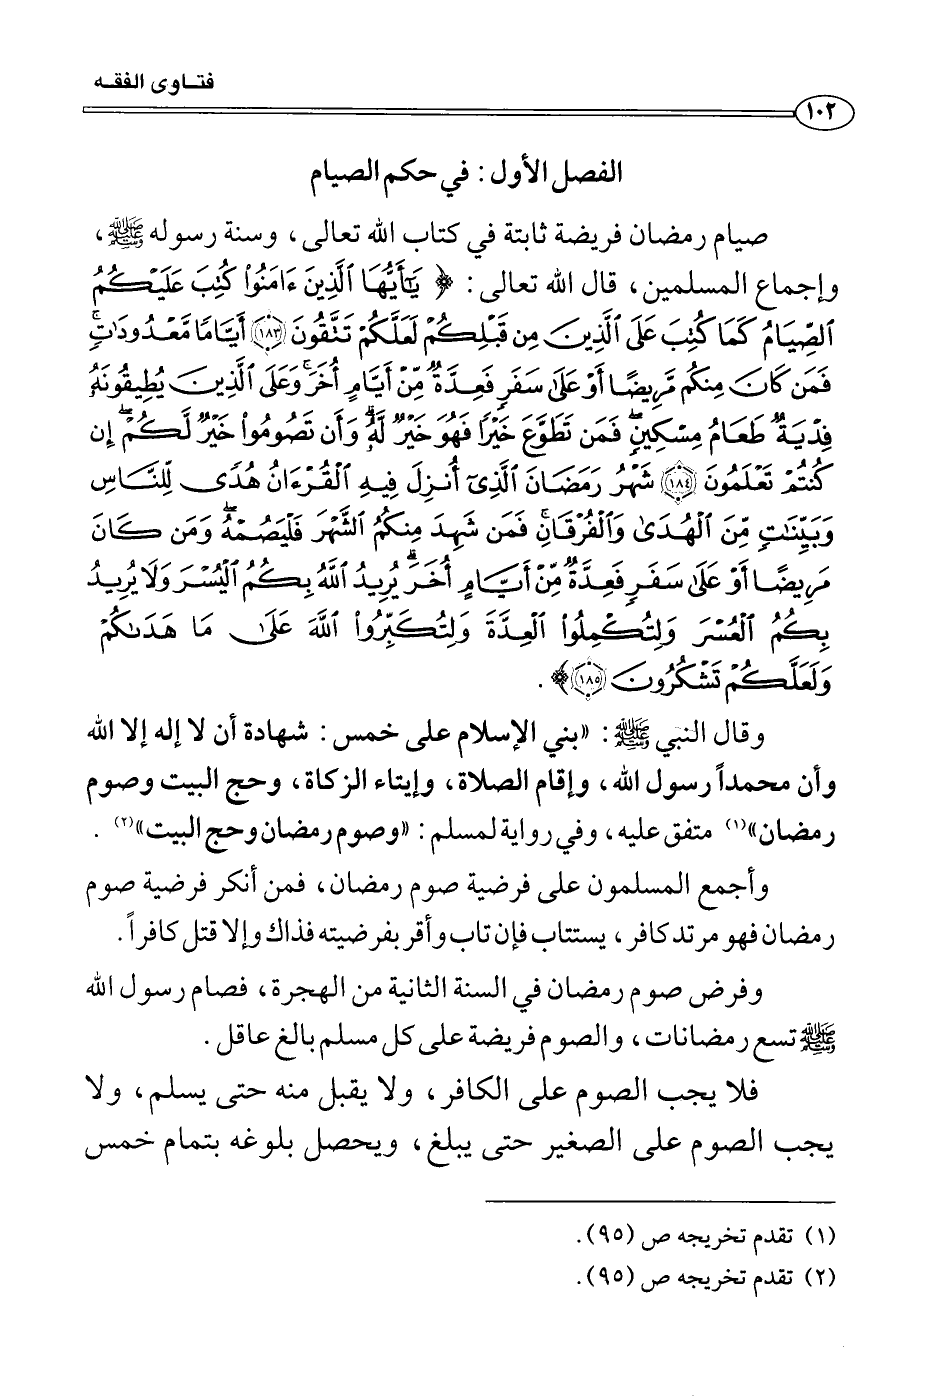 فتاوى الفقه
١٠٢
الفصل الأول: في حكم الصيام
صيام رمضان فريضة ثابتة في كتاب الله تعالى، وسنة رسوله ﷺ،
وإجماع المسلمين، قال الله تعالى: ﴿ يَٰٓأَيُّهَا ٱلَّذِينَ ءَامَنُوا۟ كُتِبَ عَلَيْكُمُ
ٱلصِّيَامُ كَمَا كُتِبَ عَلَى ٱلَّذِينَ مِن قَبْلِكُمْ لَعَلَّكُمْ تَتَّقُونَ ١٨٣ أَيَّامًا مَّعْدُودَٰتٍۚ
فَمَن كَانَ مِنكُم مَّرِيضًا أَوْ عَلَىٰ سَفَرٍ فَعِدَّةٌ مِّنْ أَيَّامٍ أُخَرَۚ وَعَلَى ٱلَّذِينَ يُطِيقُونَهُۥ
فِدْيَةٌ طَعَامُ مِسْكِينٍۖ فَمَن تَطَوَّعَ خَيْرًا فَهُوَ خَيْرٌ لَّهُۥۚ وَأَن تَصُومُوا۟ خَيْرٌ لَّكُمْۖ إِن
كُنتُمْ تَعْلَمُونَ ١٨٤ شَهْرُ رَمَضَانَ ٱلَّذِىٓ أُنزِلَ فِيهِ ٱلْقُرْءَانُ هُدًى لِّلنَّاسِ
وَبَيِّنَٰتٍ مِّنَ ٱلْهُدَىٰ وَٱلْفُرْقَانِۚ فَمَن شَهِدَ مِنكُمُ ٱلشَّهْرَ فَلْيَصُمْهُۖ وَمَن كَانَ
مَرِيضًا أَوْ عَلَىٰ سَفَرٍ فَعِدَّةٌ مِّنْ أَيَّامٍ أُخَرَۗ يُرِيدُ ٱللَّهُ بِكُمُ ٱلْيُسْرَ وَلَا يُرِيدُ
بِكُمُ ٱلْعُسْرَ وَلِتُكْمِلُوا۟ ٱلْعِدَّةَ وَلِتُكَبِّرُوا۟ ٱللَّهَ عَلَىٰ مَا هَدَىٰكُمْ
وَلَعَلَّكُمْ تَشْكُرُونَ ١٨٥﴾.
وقال النبي ﷺ: «بني الإسلام على خمس: شهادة أن لا إله إلا الله
وأن محمداً رسول الله، وإقام الصلاة، وإيتاء الزكاة، وحج البيت وصوم
رمضان»(١) متفق عليه، وفي رواية لمسلم: «وصوم رمضان وحج البيت»(٢).
وأجمع المسلمون على فرضية صوم رمضان، فمن أنكر فرضية صوم
رمضان فهو مرتد كافر، يستتاب فإن تاب وأقر بفرضيته فذاك وإلا قتل كافراً.
وفرض صوم رمضان في السنة الثانية من الهجرة، فصام رسول الله
ﷺ تسع رمضانات، والصوم فريضة على كل مسلم بالغ عاقل.
فلا يجب الصوم على الكافر، ولا يقبل منه حتى يسلم، ولا
يجب الصوم على الصغير حتى يبلغ، ويحصل بلوغه بتمام خمس
(١) تقدم تخريجه ص (٩٥).
(٢) تقدم تخريجه ص (٩٥).